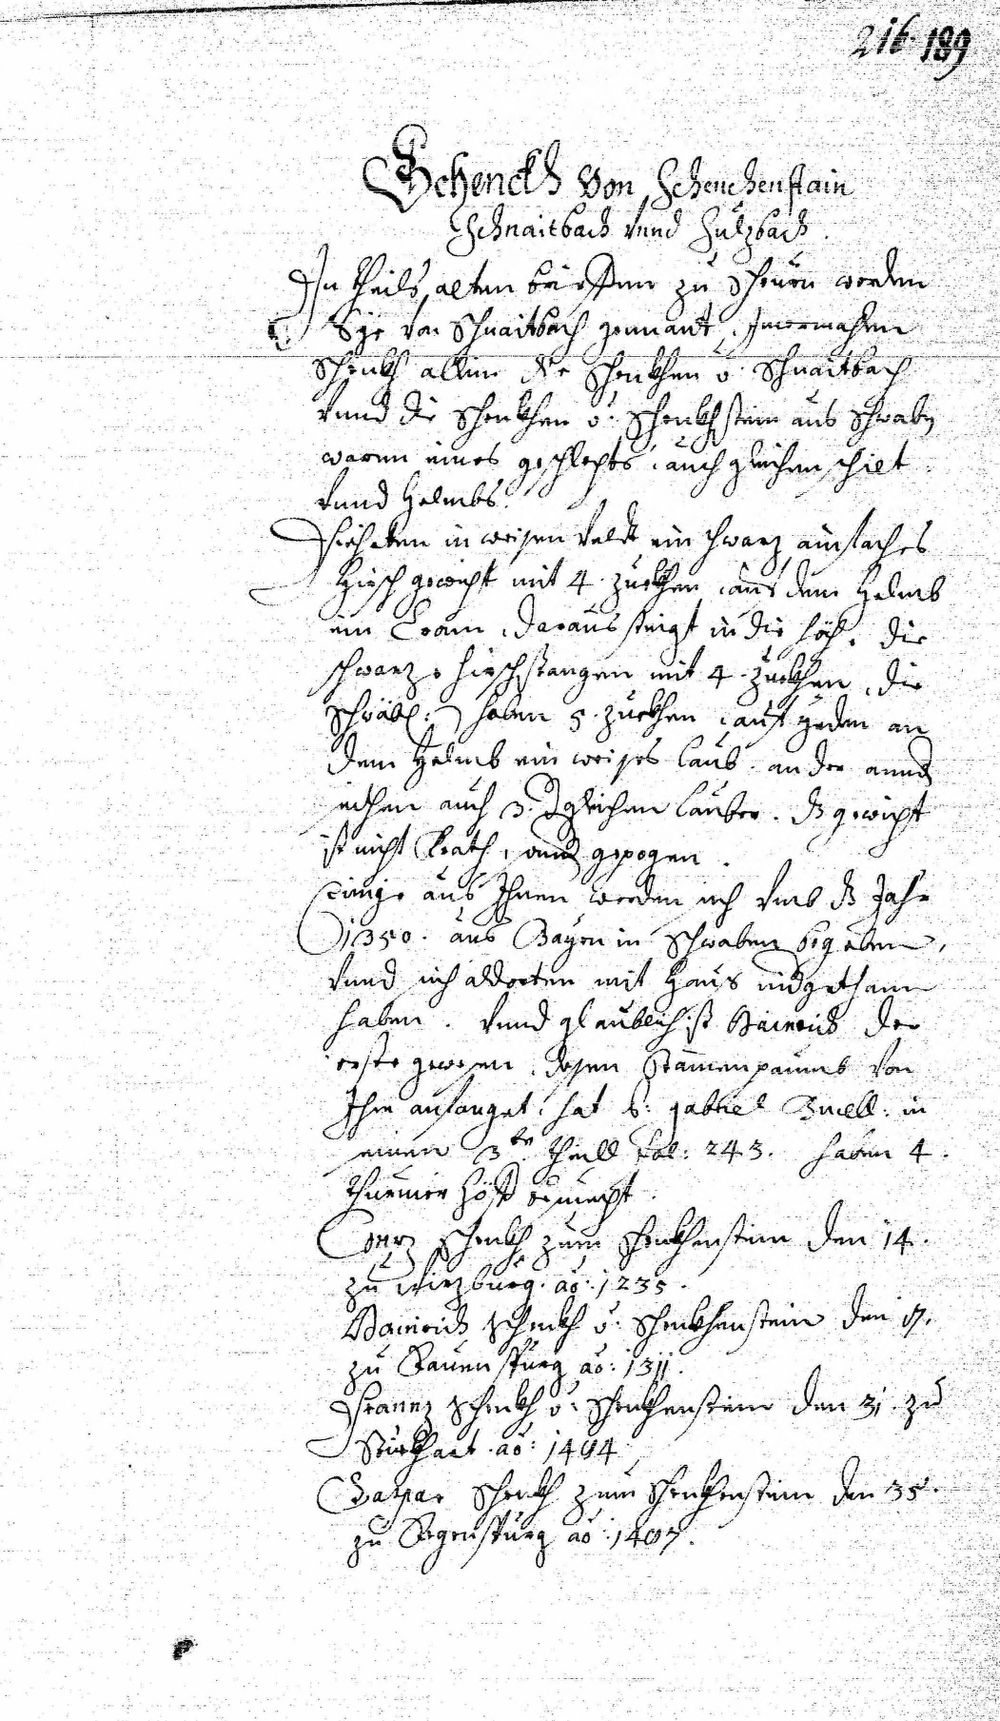 216. 189
Schenckh von Schenckenstain
Schnaitbach vnnd Sulzbach.
In theils alten brieffen zu Scheurn werden
Sye von Schnaitbach genannt,
Schenkh allein die Schenkhen v. Schnaitbach
vnnd die Schenkhen v. Schenkhstein aus Schwabn
waren eines geschlechts, auch gleichen schilt
vnnd Helmbs.
Sie haben in weisen veldt ein schwarz ainfaches
Hirsch gewicht mit 4 zuekhen, auf dem Helmb
ein Cron, daraus steigt in die höh, die
schwarze hirschstangen mit 4 zuekhen, die
Schwäb: haben 5 zuekhen, auf yeden an
dem Helmb ein weises laub, an der annd
auch 3 dergleichen lauber. dz gewicht
ist nicht Krath, vnnd gepogen.
Einige aus Ihnen werden sich vmb dz Jahr
1350. aus Bayrn in Schwaben begeben,
vnnd sich aldorten mit Haus nidgethann
haben. vnnd glaublich ist Hainrich der
erste gewesen, dessen Stammenpaumb von
Ihm anfanget, hat h: gabriel Bucell: in
seinem 3ten theill fol: 243. haben 4.
Thurnier Höff besuecht.
Conz Schenkh zum Schenkhenstein den 14.
zu Wirzburg. ao: 1235.
Hainrich Schenkh v. Schenkhenstein den 17.
zu Rauenspurg ao: 1311.
Frannz Schenkh v. Schenkhenstein den 31. zu
Stuekhart. ao: 1484
Caspar Schenkh zum Schenkhenstein den 35.
zu Regenspurg ao: 1487.